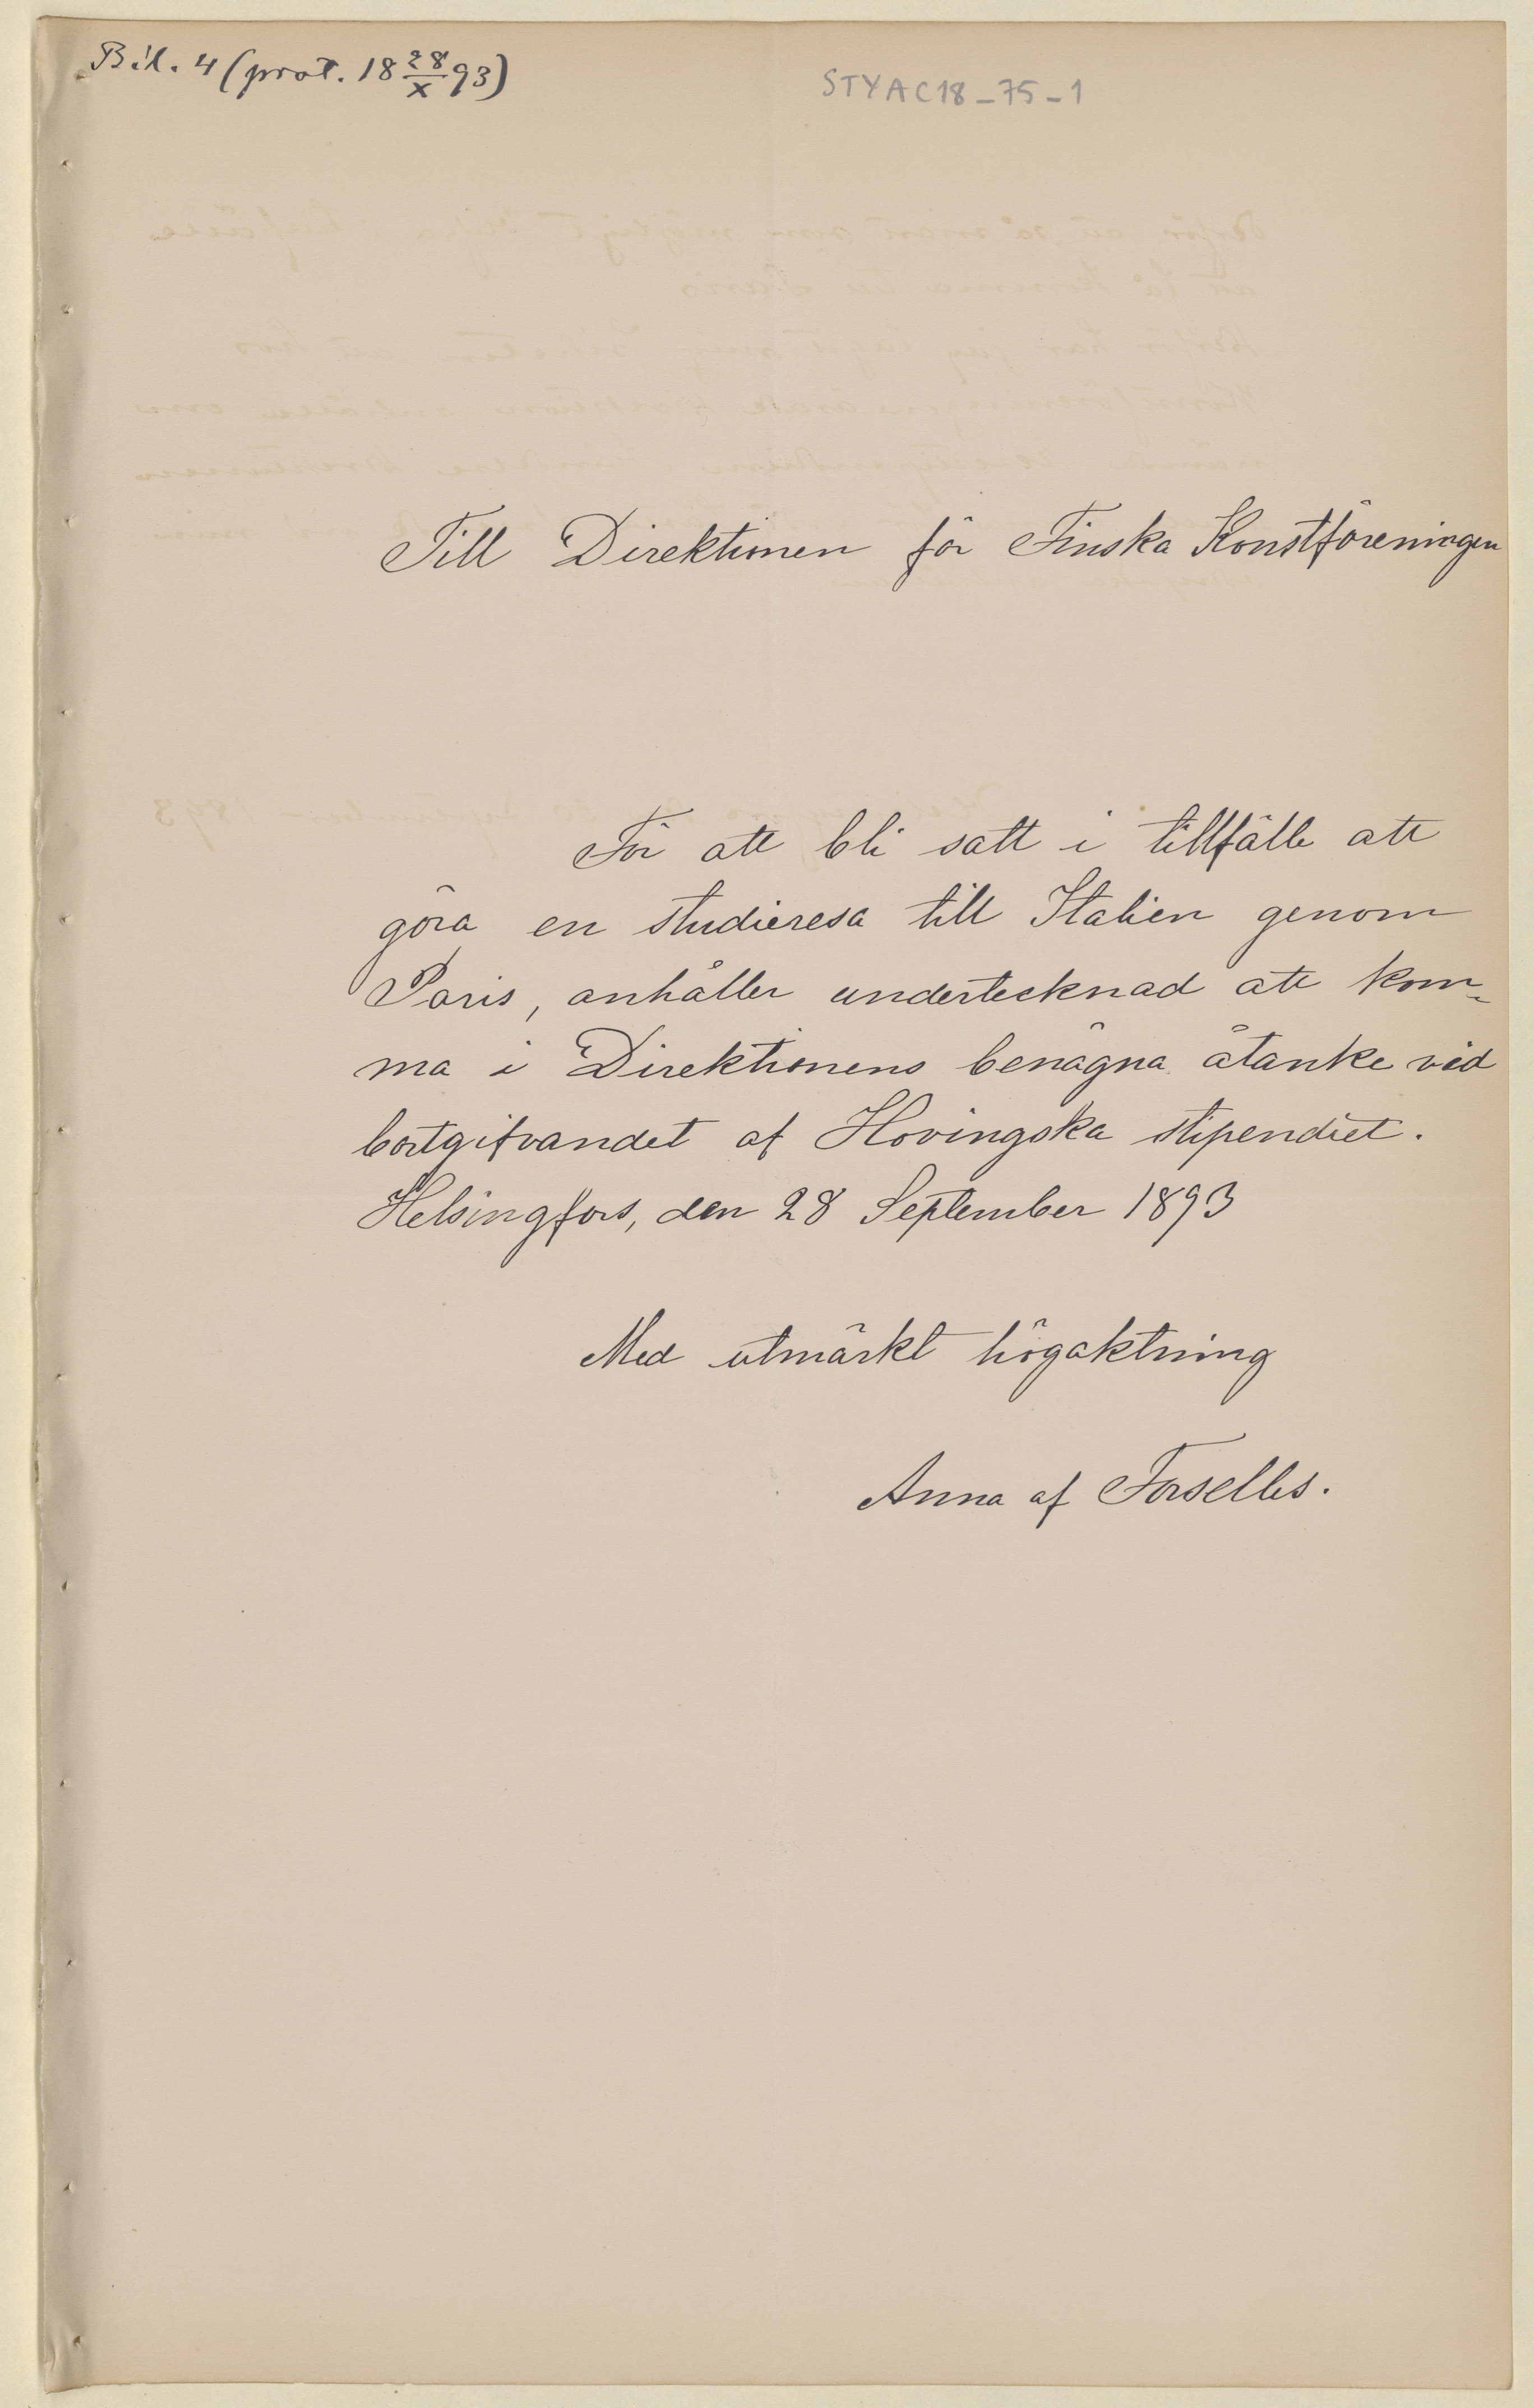 Bil. 4 (prot. 18 28/X 93)
STYAC18_75_1
Till Direktionen för Finska Konstföreningen
För att bli satt i tillfälle att
göra en studieresa till Italien genom
Paris, anhåller undertecknad att kom-
ma i Direktionens benägna åtanke vid
bortgifvandet af Hovingska stipendiet.
Helsingfors, den 28 September 1893
Med utmärkt högaktning
Anna af Forselles.